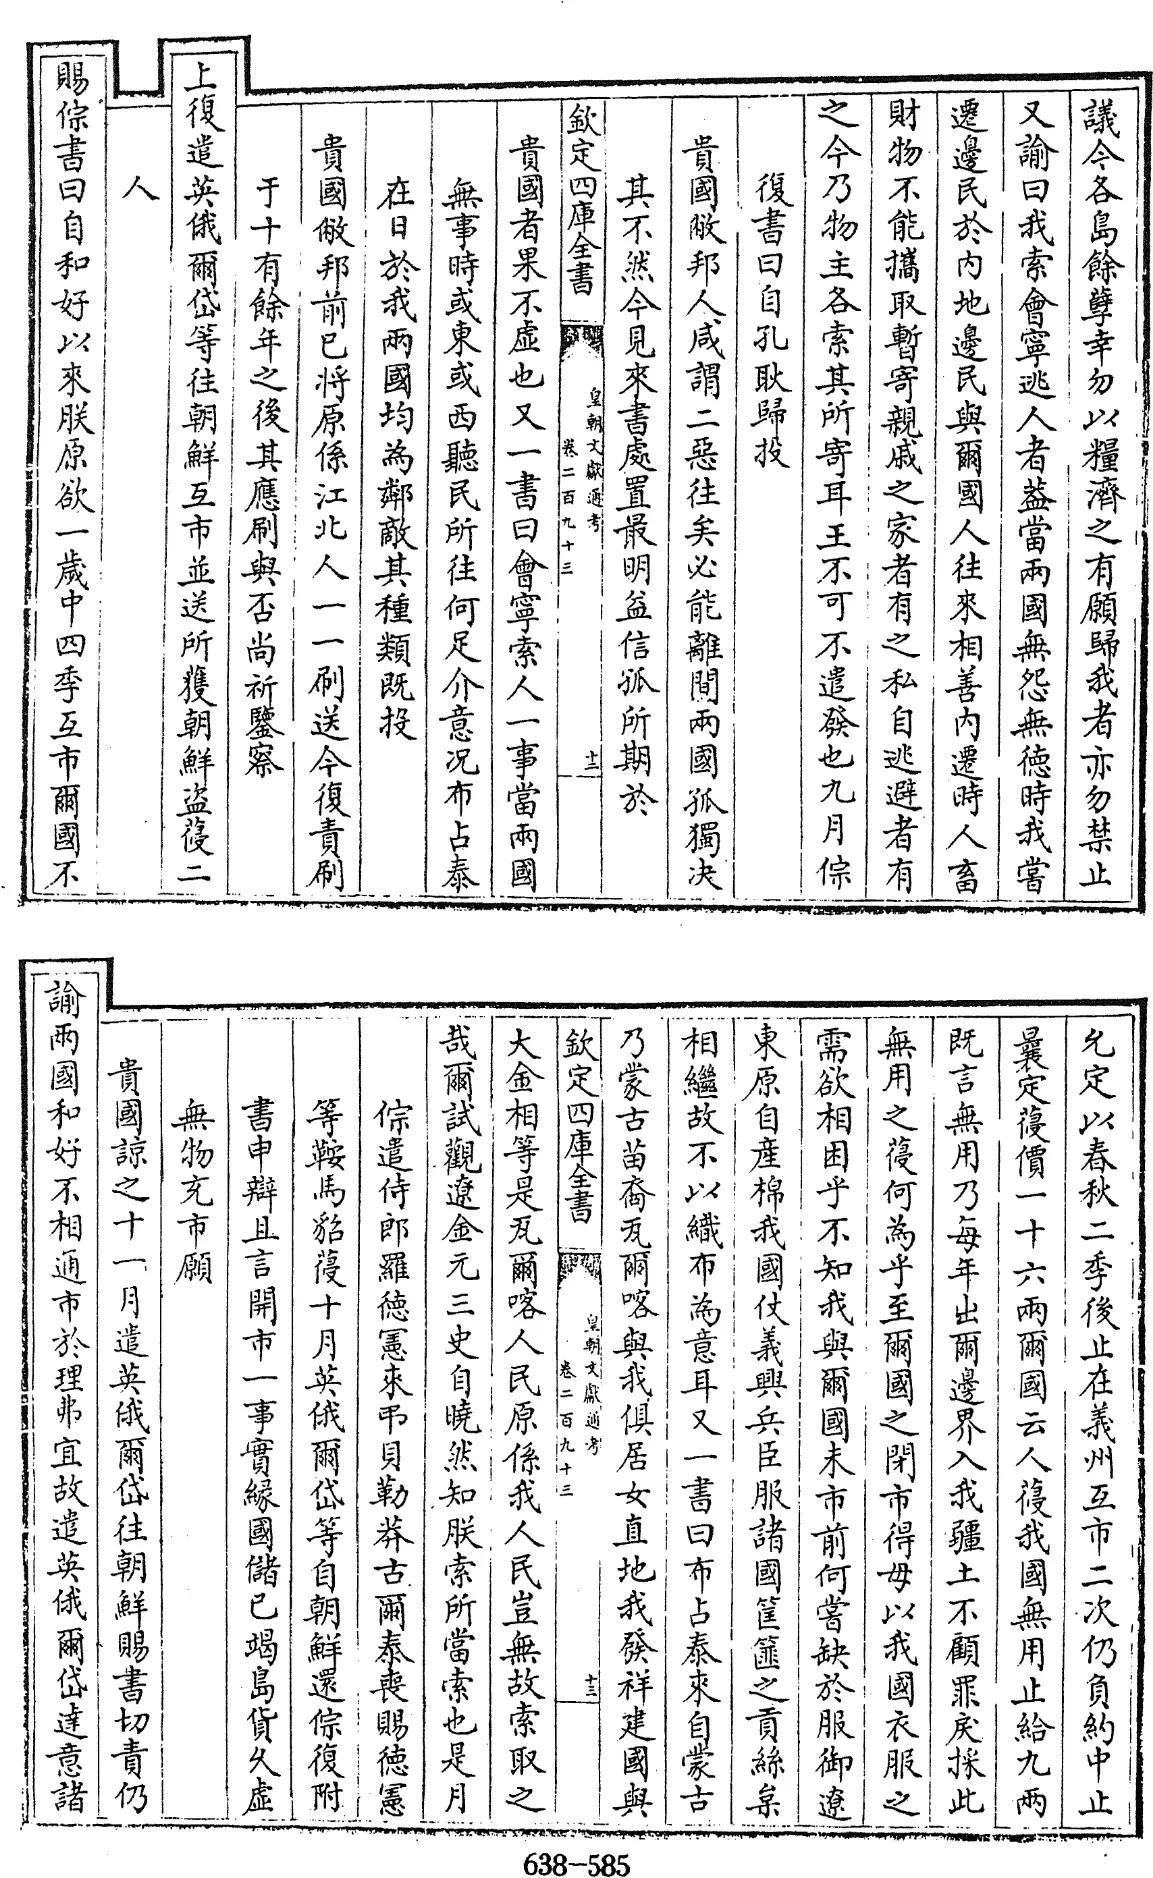 議今各島餘孽幸勿以糧濟之有願歸我者亦勿禁止
又諭曰我索會寧逃人者葢當兩國無怨無徳時我嘗
遷邊民於内地邊民與爾國人往來相善内遷時人畜
財物不能攜取暫寄親戚之家者有之私自逃避者有
之今乃物主各索其所寄耳王不可不遣發也九月倧
復書曰自孔耿歸投
貴國敝邦人咸謂二惡往矣必能離間兩國孤獨决
其不然今見來書處置最明益信孤所期於
欽定四庫全書
皇朝文獻通考
卷二百九十三
十二
貴國者果不虛也又一書曰會寧索人一事當兩國
無事時或東或西聽民所往何足介意况布占泰
在日於我兩國均為鄰敵其種類既投
貴國敝邦前已将原係江北人一一刷送今復責刷
于十有餘年之後其應刷與否尚祈鑒察
上復遣英俄爾岱等往朝鮮互市並送所獲朝鮮盜葠二
人
賜倧書曰自和好以來朕原欲一歲中四季互市爾國不
允定以春秋二季後止在義州互市二次仍負約中止
曩定葠價一十六兩爾國云人葠我國無用止給九兩
既言無用乃每年出爾邊界入我疆土不顧罪戾採此
無用之葠何為乎至爾國之閉市得毋以我國衣服之
需欲相困乎不知我與爾國未市前何嘗缺於服御遼
東原自產棉我國仗義興兵臣服諸國筐篚之貢絲枲
相繼故不以織布為意耳又一書曰布占泰來自蒙古
乃蒙古苗裔瓦爾喀與我俱居女直地我發祥建國與
欽定四庫全書
皇朝文獻通考
卷二百九十三
十三
大金相等是瓦爾喀人民原係我人民豈無故索取之
哉爾試觀遼金元三史自曉然知朕索所當索也是月
倧遣侍郎羅徳憲來弔貝勒莽古爾泰喪賜徳憲
等鞍馬貂葠十月英俄爾岱等自朝鮮還倧復附
書申辯且言開市一事實緣國儲已竭島貨久虛
無物充市願
貴國諒之十一月遣英俄爾岱往朝鮮賜書切責仍
諭兩國和好不相通市於理弗宜故遣英俄爾岱達意諸
638-585